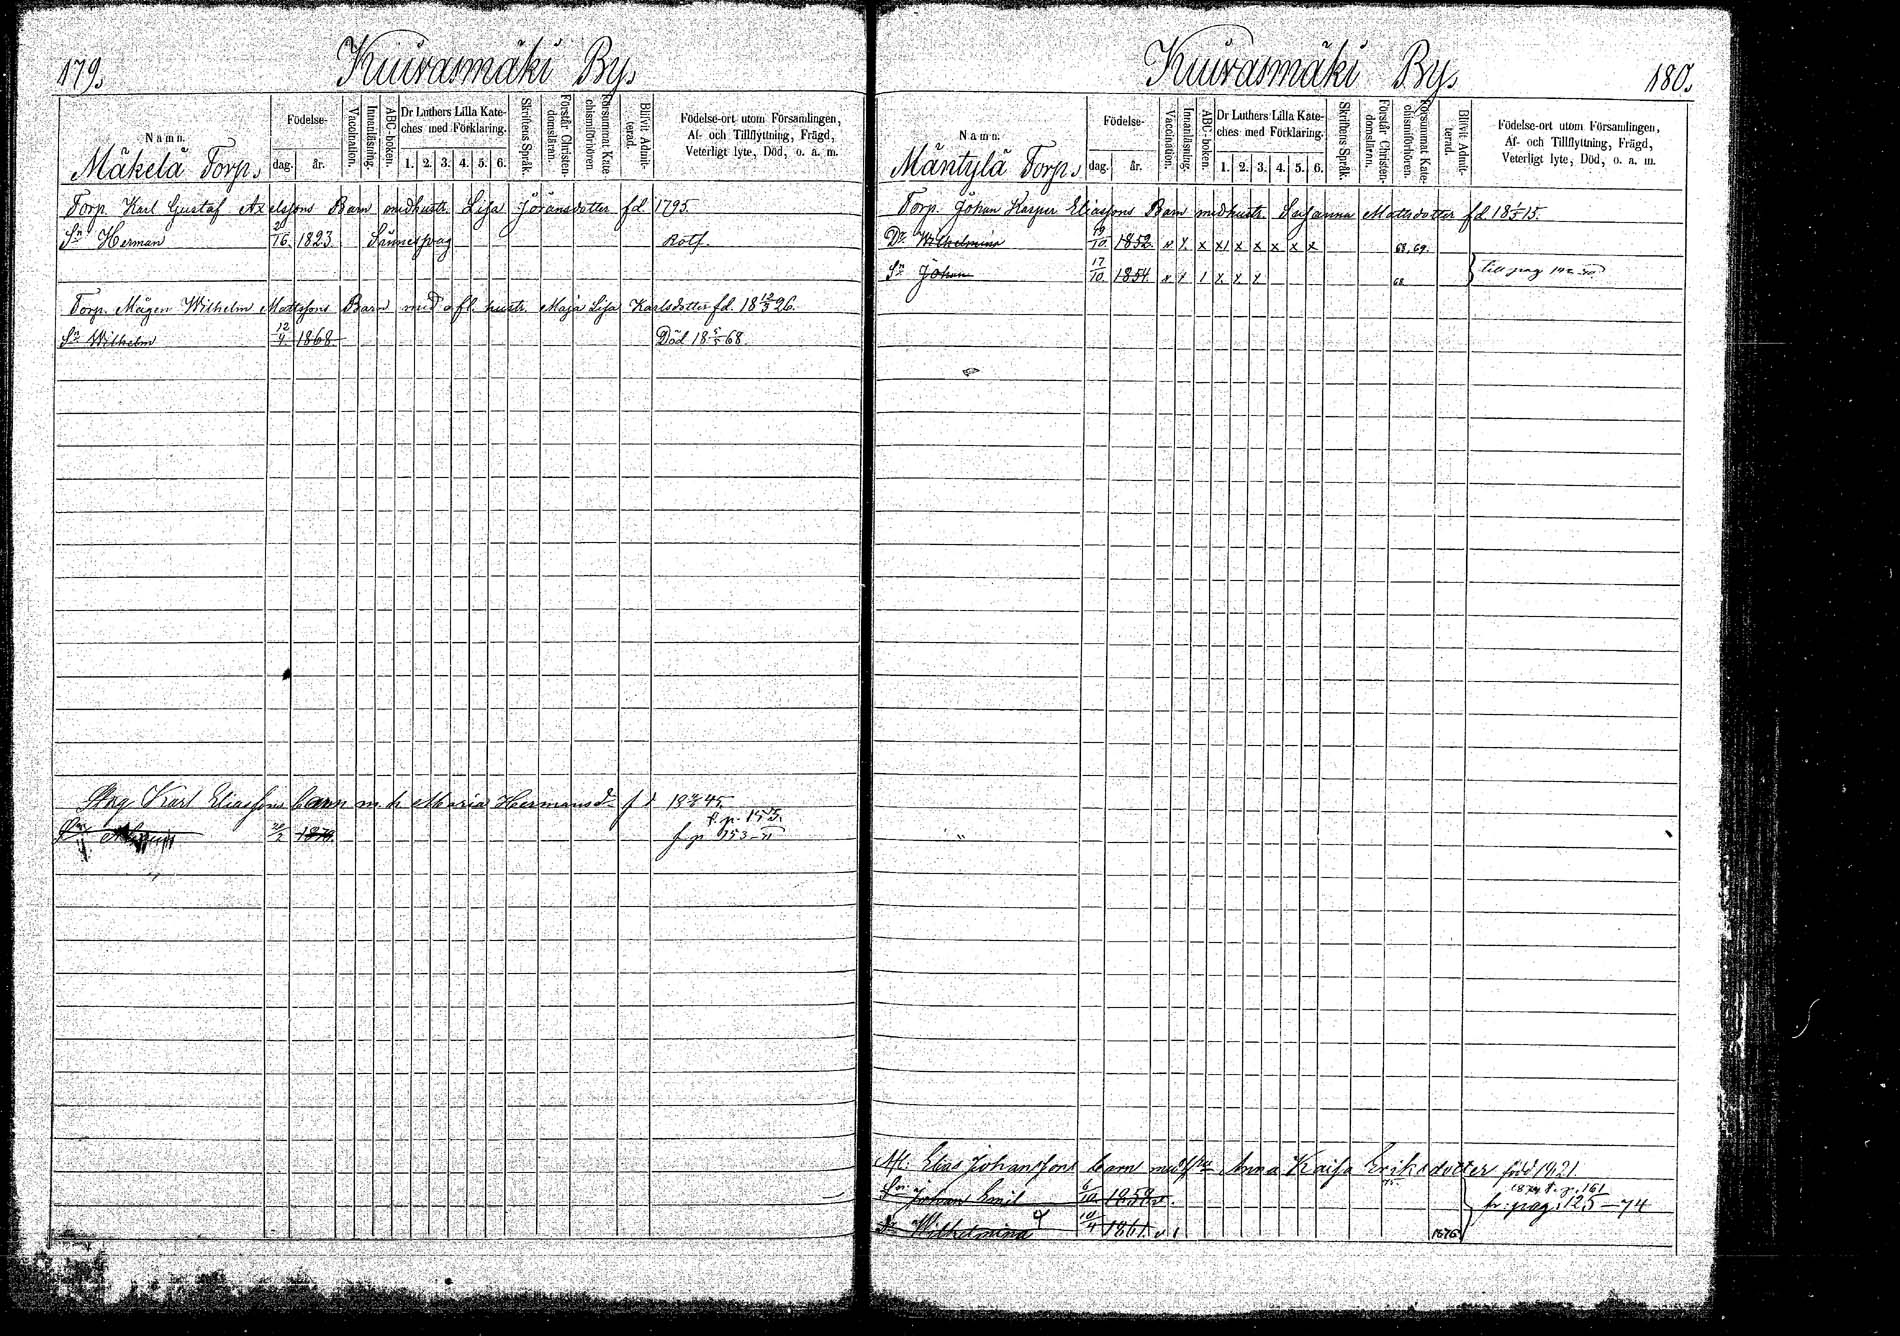 179.
Kuivasmäki By.
Namn.
Mäkelä Torp.
Födelse-
dag. år.
Vaccination.
Innanläsning.
ABC-boken.
Dr Luthers Lilla Kate-
ches med Förklaring.
1. 2. 3. 4. 5. 6.
Skriftens Språk.
Förstår Christen-
domsläran.
Försummat Kate-
chismiförhören.
Blifvit Admit-
terad.
Födelse-ort utom Församlingen,
Af- och Tillflyttning, Frägd,
Veterligt lyte, Död, o. a. m.
Torp. Karl Gustaf Axelssons Barn med hustr. Lisa Jöransdotter fd. 1795.
Sn Herman 20/16. 1823. Sinnessvag
Torp. Mågen Wilhelm Mattssons Barn med afl. hustr. Maja Lisa Karlsdotter fd. 18 26.
Sn Wilhelm 12/4. 1868. Död 18 5/5 68.
Karl Eliassons barn m. h. Maria Hermansd. f d 18 45.
f. p. 153.
f p 153-
180.
Kuivasmäki By.
Namn.
Mäntylä Torp.
Födelse-
dag. år.
Vaccination.
Innanläsning.
ABC-boken.
Dr Luthers Lilla Kate-
ches med Förklaring.
1. 2. 3. 4. 5. 6.
Skriftens Språk.
Förstår Christen-
domsläran.
Försummat Kate-
chismiförhören.
Blifvit Admit-
terad.
Födelse-ort utom Församlingen,
Af- och Tillflyttning, Frägd,
Veterligt lyte, Död, o. a. m.
Torp. Johan Kasper Eliassons Barn med hustr. Susanna Mattsdotter fd 18 1/5 15.
Dr Wilhelmina 19/10. 1852. x x x x x x x x 68, 69.
Sn Johan 17/10. 1854. 68 till pag
Elias Johanssons barn med Anna Kaisa Eriksdotter född 1821.
Sn Johan Emil 6/10 1858 f. p. 161
fr: pag. 125-74
Dr Wilhelmina 10/4 1861. 1876